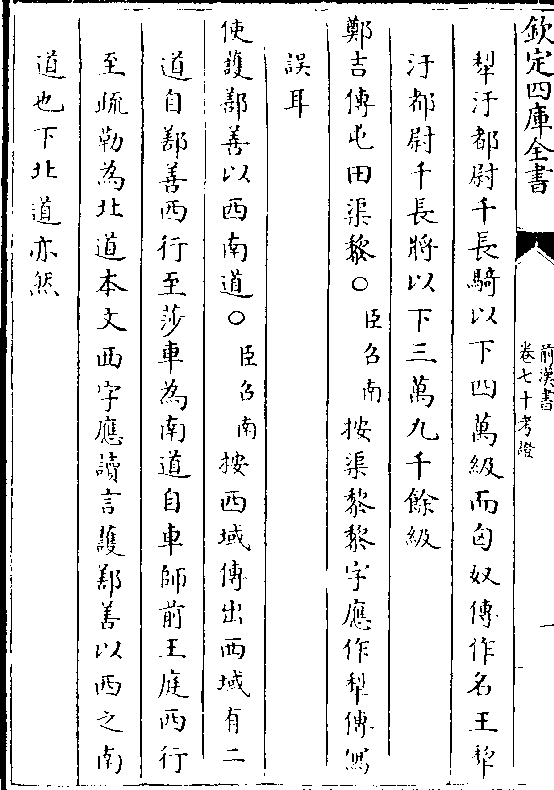 欽定四庫全書
前漢書
卷七十考證
一
犂汙都尉千長騎以下四萬級而匈奴傳作名王犂
汙都尉千長將以下三萬九千餘級
鄭吉傳屯田渠黎○臣召南按渠黎黎字應作犂傳寫
誤耳
使護鄯善以西南道○臣召南按西域傳出西域有二
道自鄯善西行至莎車為南道自車師前王庭西行
至疏勒為北道本文西字應讀言護鄯善以西之南
道也下北道亦然